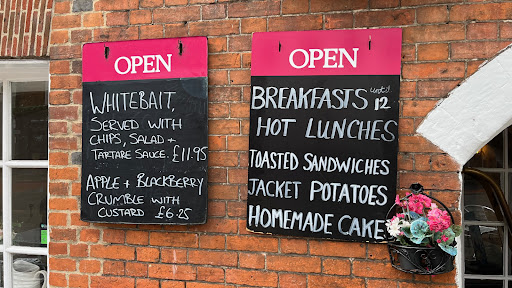 OPEN
WHITEBAIT,
SERVED WITH
CHIPS, SALAD +
TARTARE SAUCE. £11.95
APPLE + BLACKBERRY
CRUMBLE WITH
CUSTARD £6.25
OPEN
BREAKFASTS until 12
HOT LUNCHES
TOASTED SANDWICHES
JACKET POTATOES
HOMEMADE CAKE